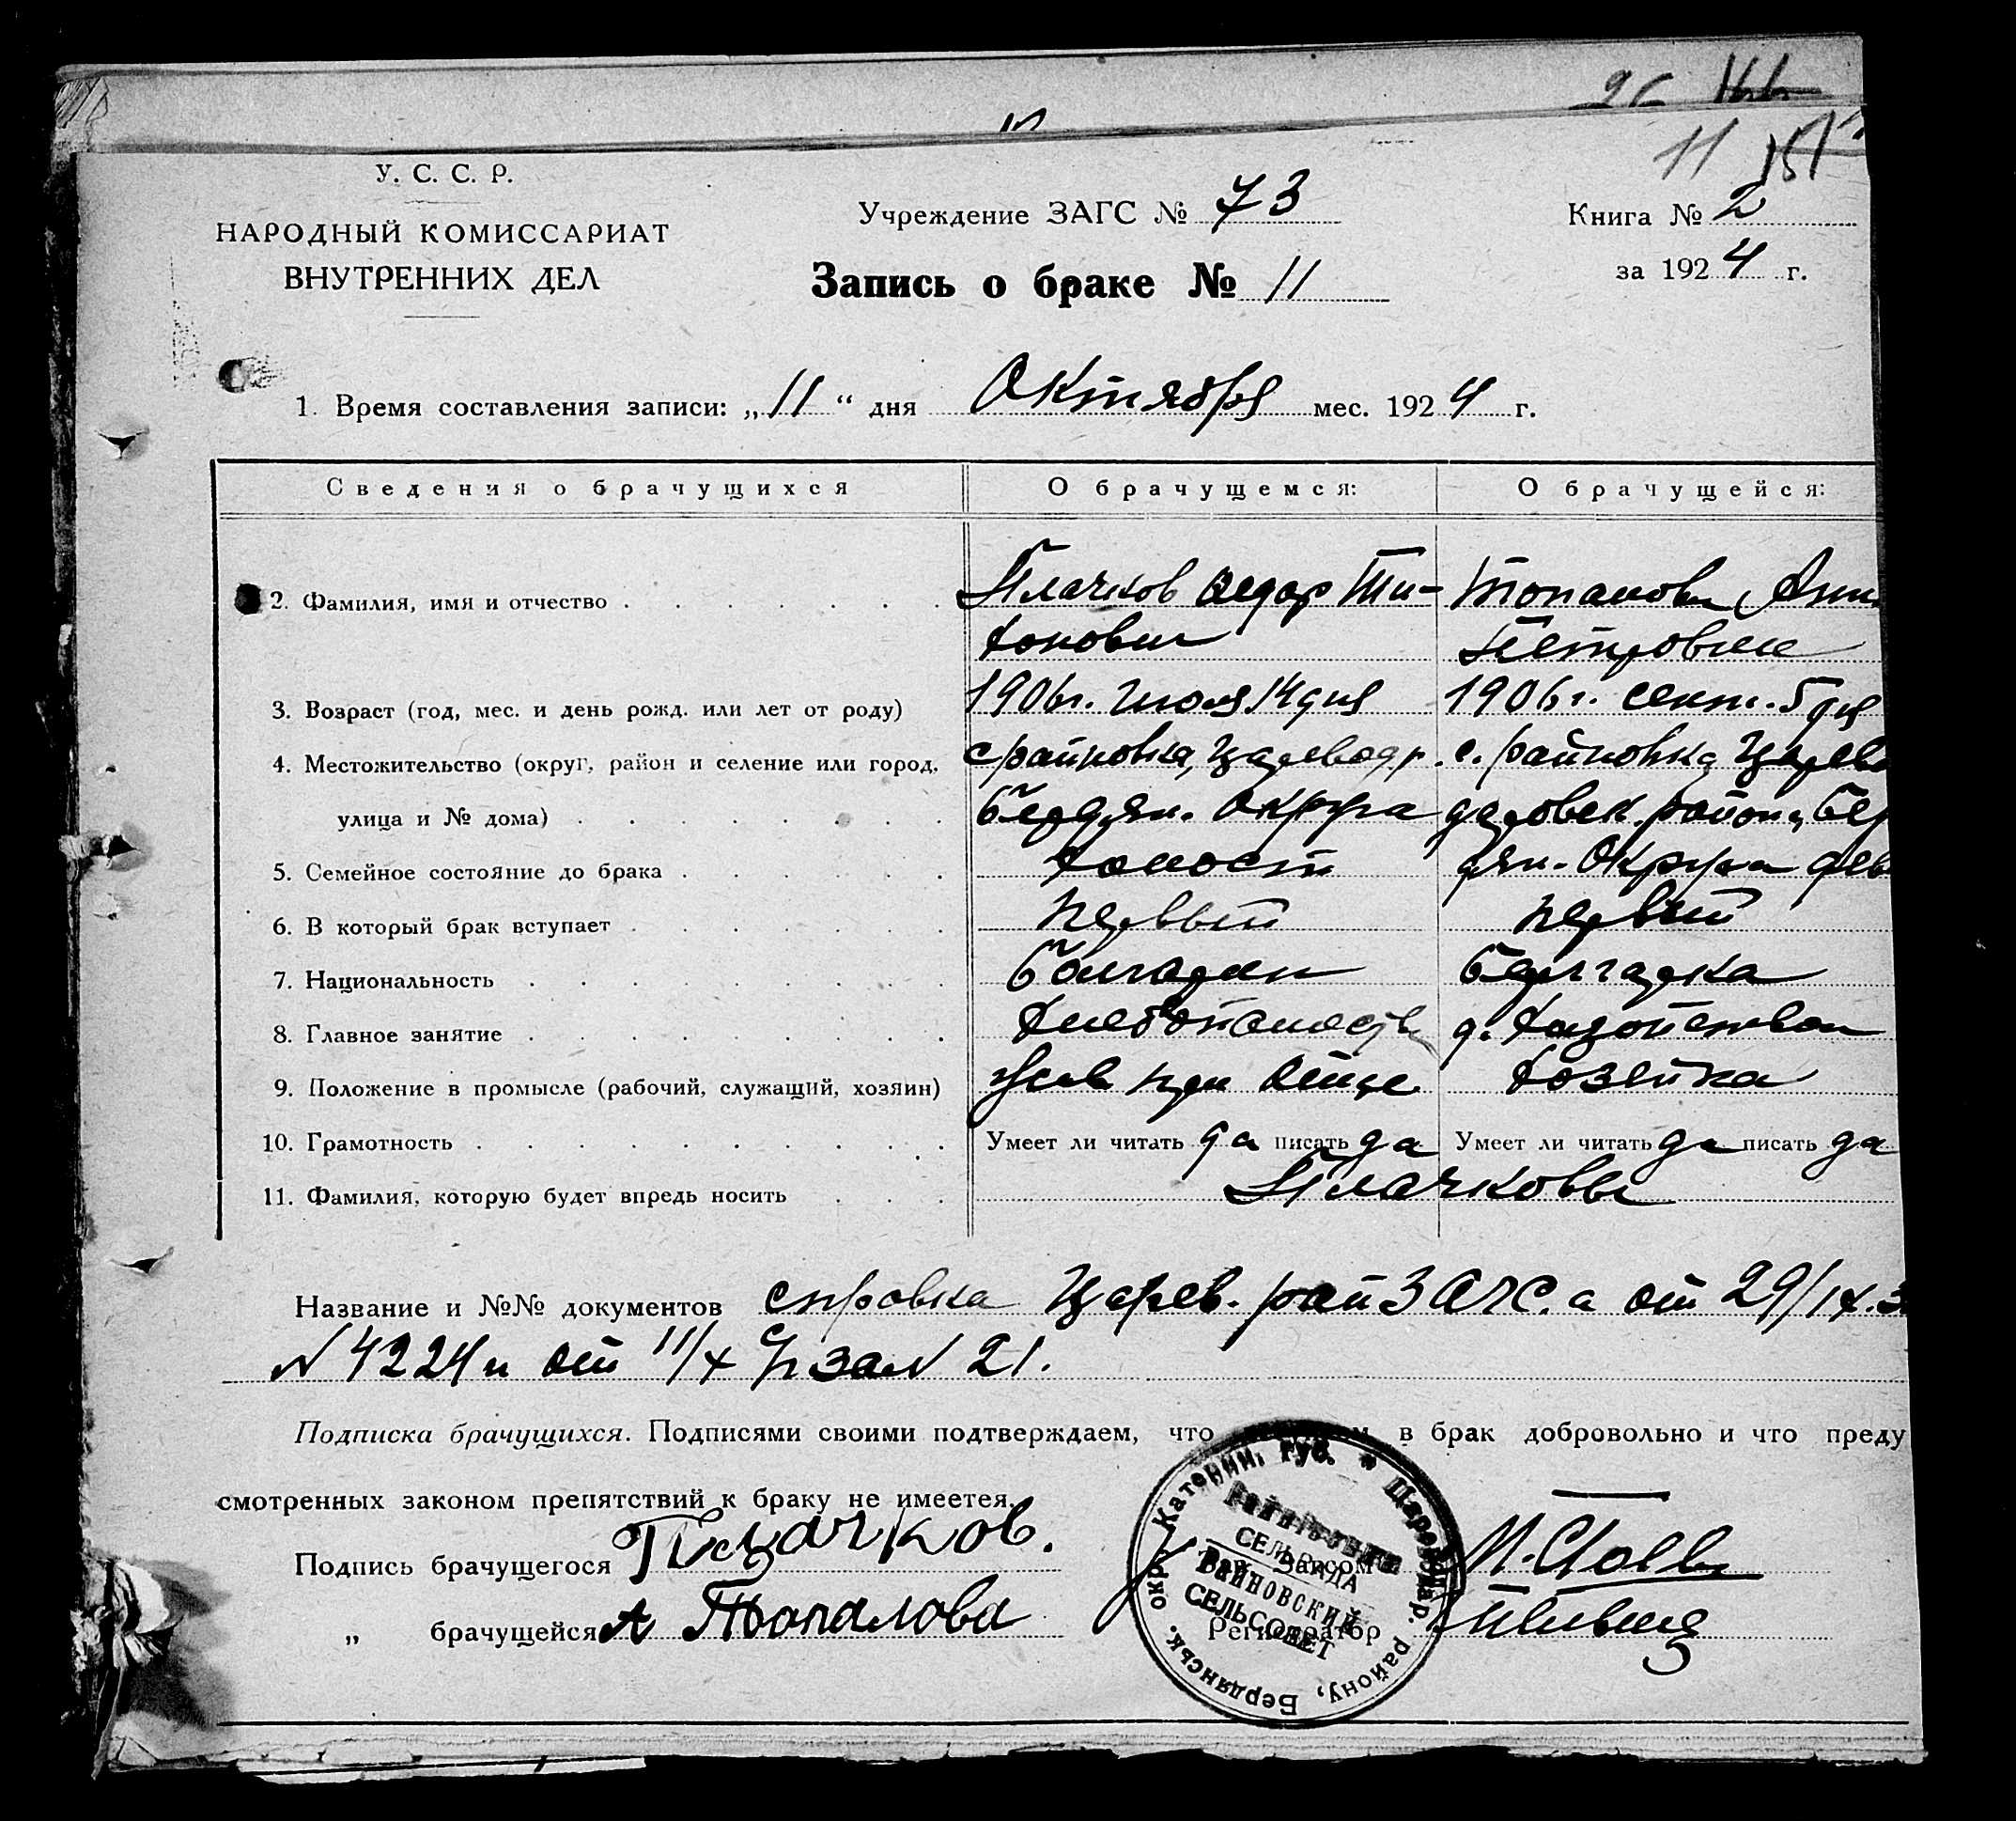 26
11
У. С. С. Р.
НАРОДНЫЙ КОМИССАРИАТ
ВНУТРЕННИХ ДЕЛ
Учреждение ЗАГС № 73
Книга № 2
за 1924 г.
Запись о браке № 11
1. Время составления записи: „11“ дня Октября мес. 1924 г.
Сведения о брачущихся О брачущемся: О брачущейся:
2. Фамилия, имя и отчество Плачков Федор Ти- Топалова Анн
хонович Петровна
3. Возраст (год, мес. и день рожд. или лет от роду) 1906г. Июля 14 дня 1906г. сент. 5 дня
4. Местожительство (округ, район и селение или город, с райновка, Цареводр. с. райновка Царево
улица и № дома) Бердян. Округа даровск. район, Бер
5. Семейное состояние до брака холост дян. Округа дев
6. В который брак вступает первый первый
7. Национальность болгарин болгарка
8. Главное занятие хлебопашеств д. хозяйством
9. Положение в промысле (рабочий, служащий, хозяин) при отце хозяйка
10. Грамотность Умеет ли читать да писать да Умеет ли читать да писать да
11. Фамилия, которую будет впредь носить Плачковы
Название и №№ документов справка Царев. рай ЗАГС.а от 29/IX.
N 4224 и от 11/X за N 21.
Подписка брачущихся. Подписями своими подтверждаем, что в брак добровольно и что преду
смотренных законом препятствий к браку не имеетея.
Подпись брачущегося Плачков.
„ брачущейся А Топалова
Зав. Загсом
Регистратор
Катерин. губ. * Царевдар. району, Бердянськ. окр.
СЕЛЬРАДА
Райновский
СЕЛЬСОВЕТ